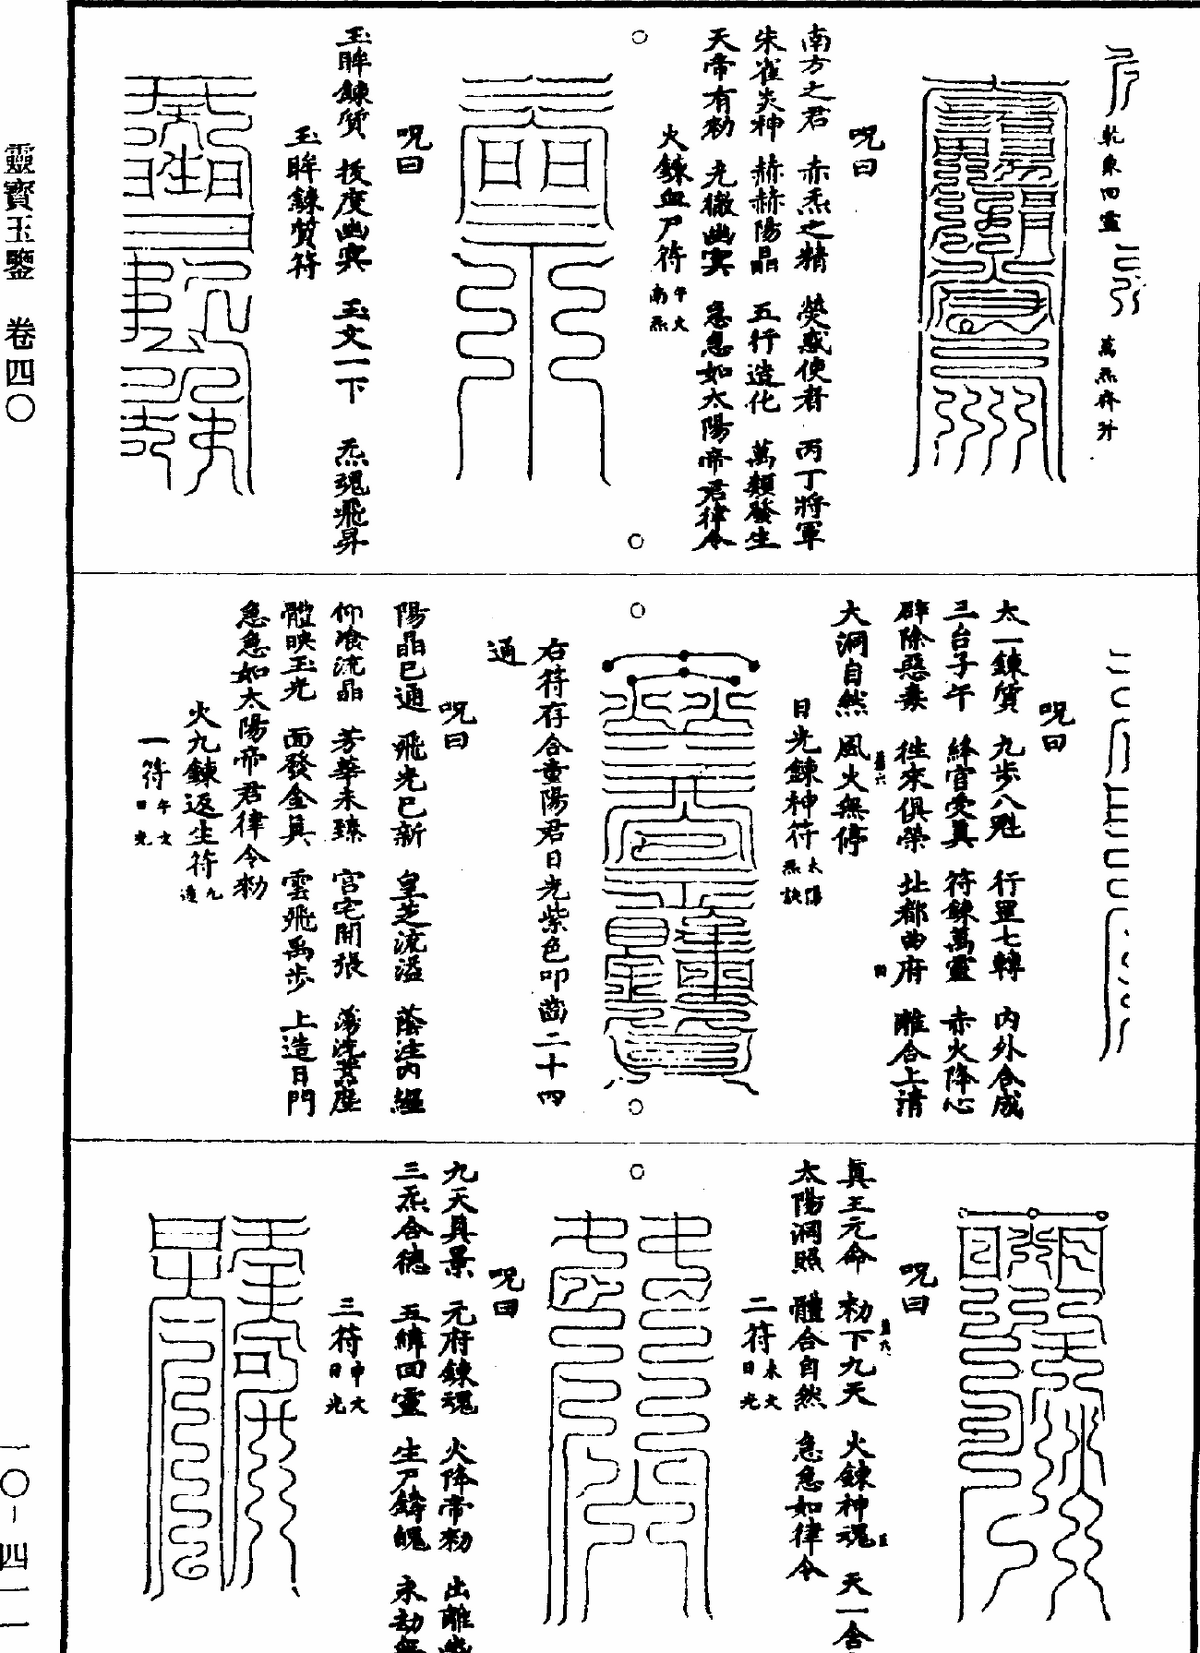 靈寶玉鑒 卷四〇
一〇-四一一
乾東回靈
萬炁齊升
呪曰
南方之君 赤炁之精 熒惑使者 丙丁將軍
朱雀炎神 赫赫陽晶 五行造化 萬類發生
天帝有勑 光徹幽冥 急急如太陽帝君律令
火鍊血尸符 午文 南炁
呪曰
玉眸鍊質 拔度幽冥 玉文一下 炁魂飛昇
玉眸鍊質符
呪曰
太一鍊質 九步八魁 行罡七轉 內外合成
三台子午 絳宮受真 符鍊萬靈 赤火降心
辟除惡毒 徃來俱榮 北都曲府 離合上清
大洞自然 風火無停
日光鍊神符 太陽炁訣
右符存合童陽君日光紫色叩齒二十四
通
呪曰
陽晶已通 飛光已新 皇芝流溢 蔭注內經
仰飡流晶 芳華未臻 宮宅開張
體映玉光 面發金真 雲飛禹步 上造日門
急急如太陽帝君律令勑
火九鍊返生符 九道
一符 午文 日光
呪曰
真王元命 勑下九天 火鍊神魂 天一含
太陽洞照 體合自然 急急如律令
二符 未文 日光
呪曰
九天真景 元府鍊魂 火降帝勑 出離
三炁合德 五緯回靈 生尸鑄魄 永劫
三符 申文 日光